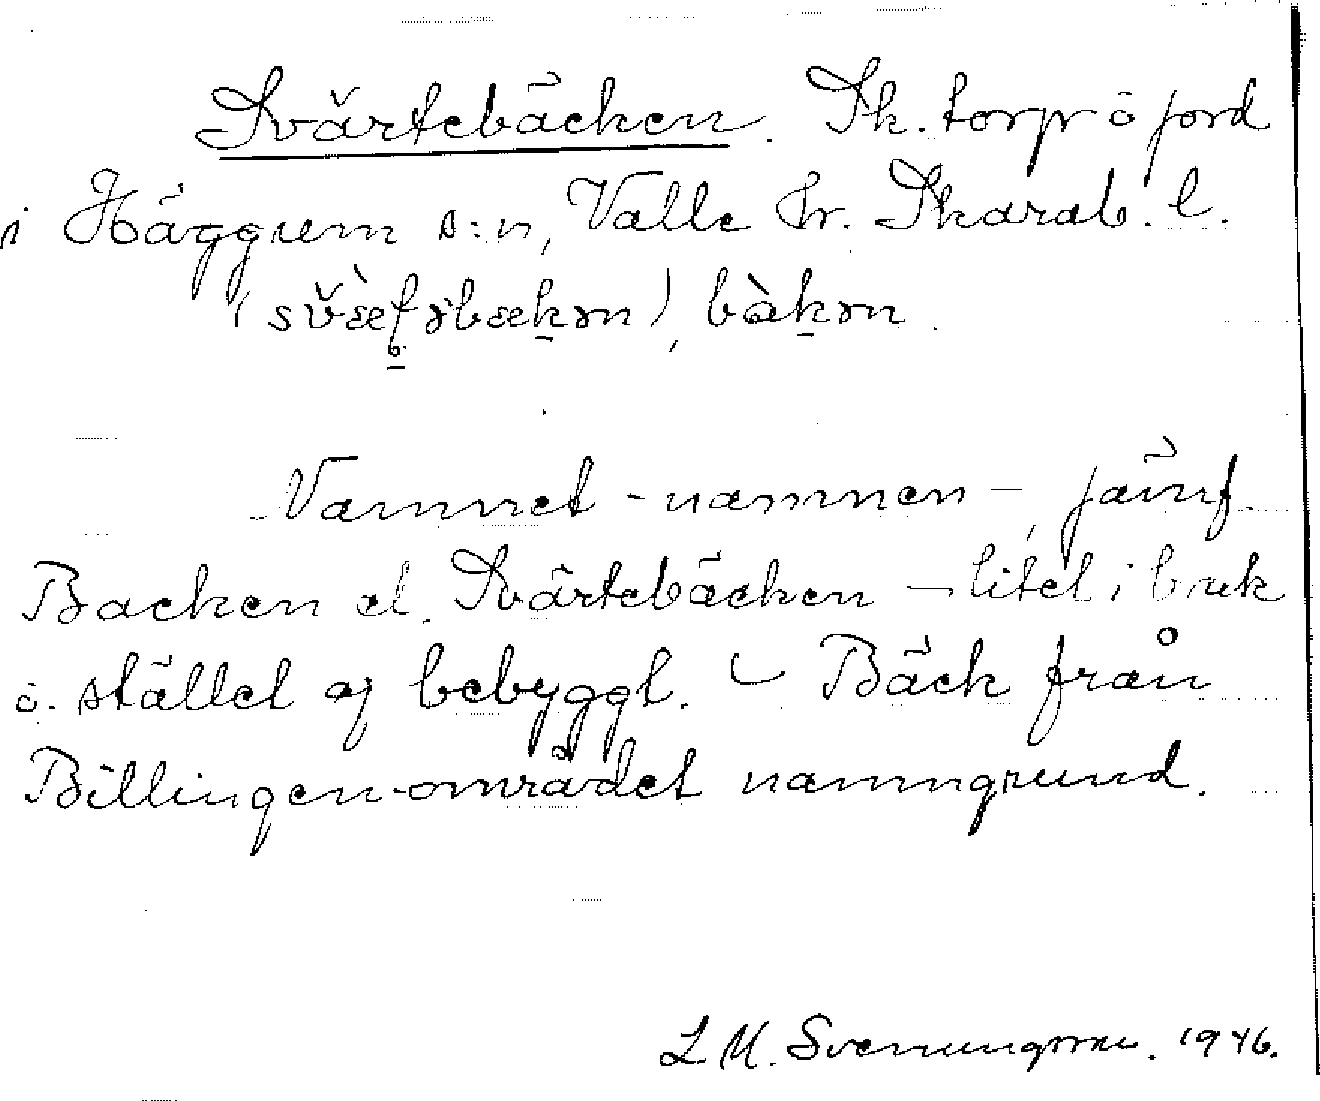 Svärtebäcken. Sk. torp o jord
i Häggum s:n, Valle hr. Skarab. l.
bàkən.
Namnet - namnen -, jämf.
Backen el. Svärtebäcken - litet i bruk
o. stället ej bebyggt. - Bäck från
Billingen-området namngrund.
L M. Svenungsson. 1946.